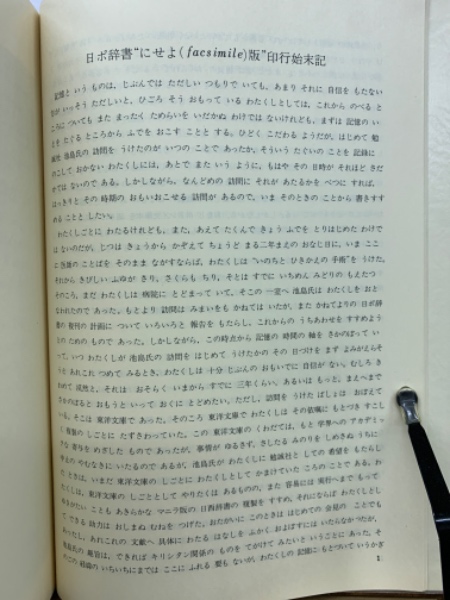 日ポ辞書“にせよ(facsimile)版”印行始末記
記憶と いう ものは，じぶんでは ただしい つもりで いても，あまり それに 自信を もたない
方が いっそう ただしいと，ひごろ そう おもって いる わたくしとしては，これから のべる と
ころに ついても また まったく ためらいを いだかぬ わけでは ないけれども，まずは 記憶の い
とを たぐる ところから ふでを おこす ことと する。ひどく こだわる ようだが，はじめて 勉
誠社 池島氏の 訪問を うけたのが いつの ことで あったか，そういう たぐいの ことを 記録に
のこして おかない わたくしには，あとで また いう ように，もはや その 日時が それほど さだ
かでは ないので ある。しかしながら，なんどめの 訪問に それが あたるかを べつに すれば，
はっきりと その 時期の おもいおこせる 訪問が あるので，いま そのときの ことから 書きすす
める ことと したい。
わたくしごとに わたるけれども，また，あえて たくんで きょう ふでを とりはじめた わけで
は ないのだが，じつは きょうから かぞえて ちょうど まる二年まえの おなじ日に，いま ここ
に 医師の ことばを そのまま ながすならば，わたくしは “いのちと ひきかえの 手術”を うけた。
それから きびしい ふゆが さり，さくらも ちり，そとは すでに いちめん みどりの もえたつ
そのころ，まだ わたくしは 病院に とどまって いて，そこの 一室へ 池島氏は わたくしを おと
なわれたので あった。もとより 訪問は みまいをも かねては いたが，また かねてよりの 日ポ辞
書の 復刊の 計画に ついて いろいろと 報告を もたらし，これからの うちあわせを すすめよう
との ための もので あった。しかしながら，この時点から 記憶の 時間の 軸を さかのぼって い
って，いつ わたくしが 池島氏の 訪問を はじめて うけたかの その 日づけを まず よみがえらそ
うと あれこれ つめて みるとき，わたくしは 十分 じぶんの おもいでに 自信が ない。むしろ き
わめて 茫然と，それは おそらく いまから すでに 三年くらい，あるいは もっと，まえへまで
さかのぼると おもうと いって おくに とどめたい。ただし，訪問を うけた ばしょは おぼえて
いる。そこは 東洋文庫で あった。そのころ 東洋文庫で わたくしは その依嘱に もとづき すこし
く 複製の しごとに たずさわっていた。この 東洋文庫の くわだては，もと 学界への アカデミッ
クな 寄与を めざした もので あったが，事情が ゆるさず，さしたる みのりを しめさぬ うちに
中止の やむなきに いたるので あるが，池島氏が わたくしに 勉誠社と しての 希望を もたらし
た ときは，いまだ 東洋文庫の しごとに わたくしとして かまけていた ころの ことで ある。わ
たくしは，東洋文庫の しごととして やりたくは あるものの，また 容易には 実行へまで もって
ゆきがたい ことも あきらかな マニラ版の 日西辞書の 複製を すすめ，それにならば わたくしとし
て できる 助力は おしまぬ むねを つげた。おたがいに このときは はじめての 会見の ことでも
あったし，あれこれの 文献へ 具体に わたる はなしを ふかく およぼすには いたらなかったが，
池島氏の 趣旨は，できれば キリシタン関係の ものを てがけて みたいと いうことに あった。そ
の 経緯の いちいちにまでは ここに ふれる 要も ないが，わたくしの 記憶に もとづいて いうかぎ
1